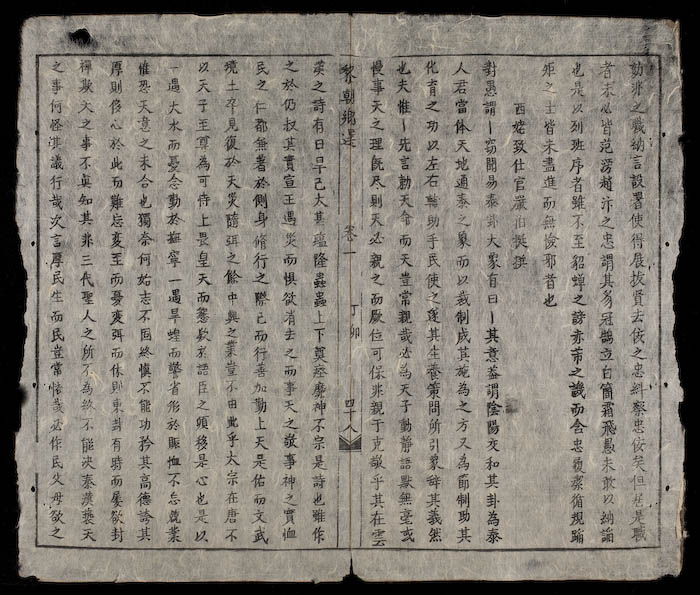 劾非之職納言設署使得展拔賢去佞之忠糾察忠佞矣但居是職
者未必皆范滂趙汴之忠謂其豸冠鶴立白簡霜飛愚未敢以納誨
也是以列班序者雖不至貂蟬之謗赤芾之譏而含忠履潔循規蹈
矩之士皆未盡進而無憸邪者也
西姥致仕官嚴伯撰
對愚謂〡竊聞易泰卦大象有曰〡其意蓋謂陰陽交和其卦為泰
人君當体天地通泰之象而以裁制成其施為之方又為節制助其
化育之功以左右輔助乎民使之遂其生養策問所引象辞其義然
也夫惟〡先言勅天命而天豈常親哉必為天子動静語默無毫或
慢事天之理既尽則天必親之而厥位可保非親于克敬乎其在雲
黎朝鄉選 卷一 丁卯 四十八
漢之詩有曰旱已大甚蘊隆蟲蟲上下奠瘞靡神不宗是詩也雖作
之於仍叔其實宣王遇災而惧欲消去之而事天之敬事神之實恤
民之仁都無著於側身脩行之際已而行善加勤上天是佑而文武
境土卒見復於天災隨弭之餘中興之業豈不由此乎太宗在唐不
以天子王尊為可恃上畏皇天而懲歎於語臣之頃移是心也是以
一遇大水而憂念勤於撫寧一遇旱蝗而警省形於賑恤不忘兢業
惟恐天意之未合也獨奈何始志不固終慎不能功矜其高德誇其
厚則侈心於此而难忘変至而憂変弭而休則東封有時而屢欲封
禪欺天之事不真知其非三代聖人之所不為終不能决秦漢褻天
之事何怪其議行哉次言厚民生而民豈常懷哉必作民父母欲之